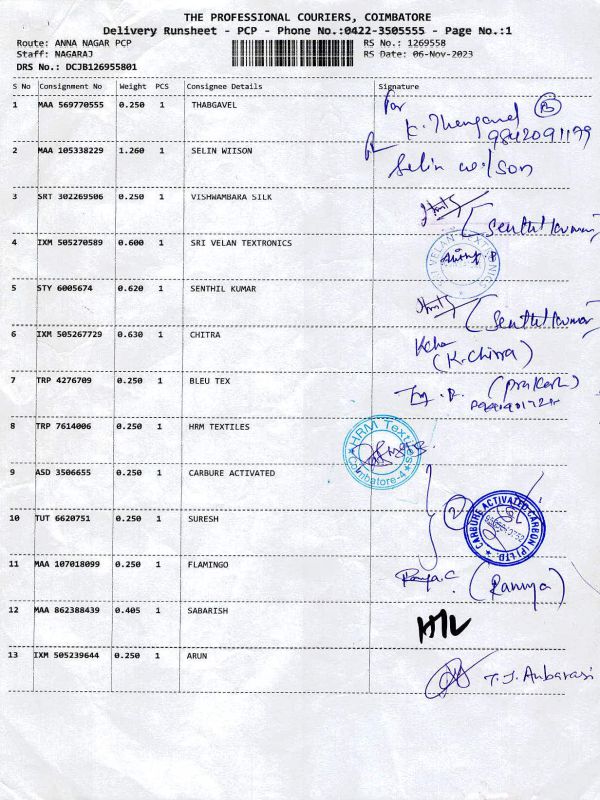 THE PROFESSIONAL COURIERS, COIMBATORE
Delivery Runsheet - PCP - Phone No.:0422-3505555 - Page No.:1
Route: ANNA NAGAR PCP RS No.: 1269558
Staff: NAGARAJ RS Date: 06-Nov-2023
DRS No.: DCJB126955801
S No Consignment No Weight PCS Consignee Details Signature
1 MAA 569770555 0.250 1 THABGAVEL For
9842091199
2 MAA 105338229 1.260 1 SELIN WIISON Selin wilson
3 SRT 302269506 0.250 1 VISHWAMBARA SILK (Senthil kumar)
4 IXM 505270589 0.600 1 SRI VELAN TEXTRONICS
5 STY 6005674 0.620 1 SENTHIL KUMAR (Senthil kumar)
6 IXM 505267729 0.630 1 CHITRA (K.Chitra)
7 TRP 4276709 0.250 1 BLEU TEX (Prakash)
8 TRP 7614006 0.250 1 HRM TEXTILES HRM Textiles Coimbatore-4
9 ASD 3506655 0.250 1 CARBURE ACTIVATED
10 TUT 6620751 0.250 1 SURESH 2 CARBURE ACTIVATED CARBON (P) LTD.
11 MAA 107018099 0.250 1 FLAMINGO Ramya.C (Ramya)
12 MAA 862388439 0.405 1 SABARISH
13 IXM 505239644 0.250 1 ARUN T.J. Anbarasi